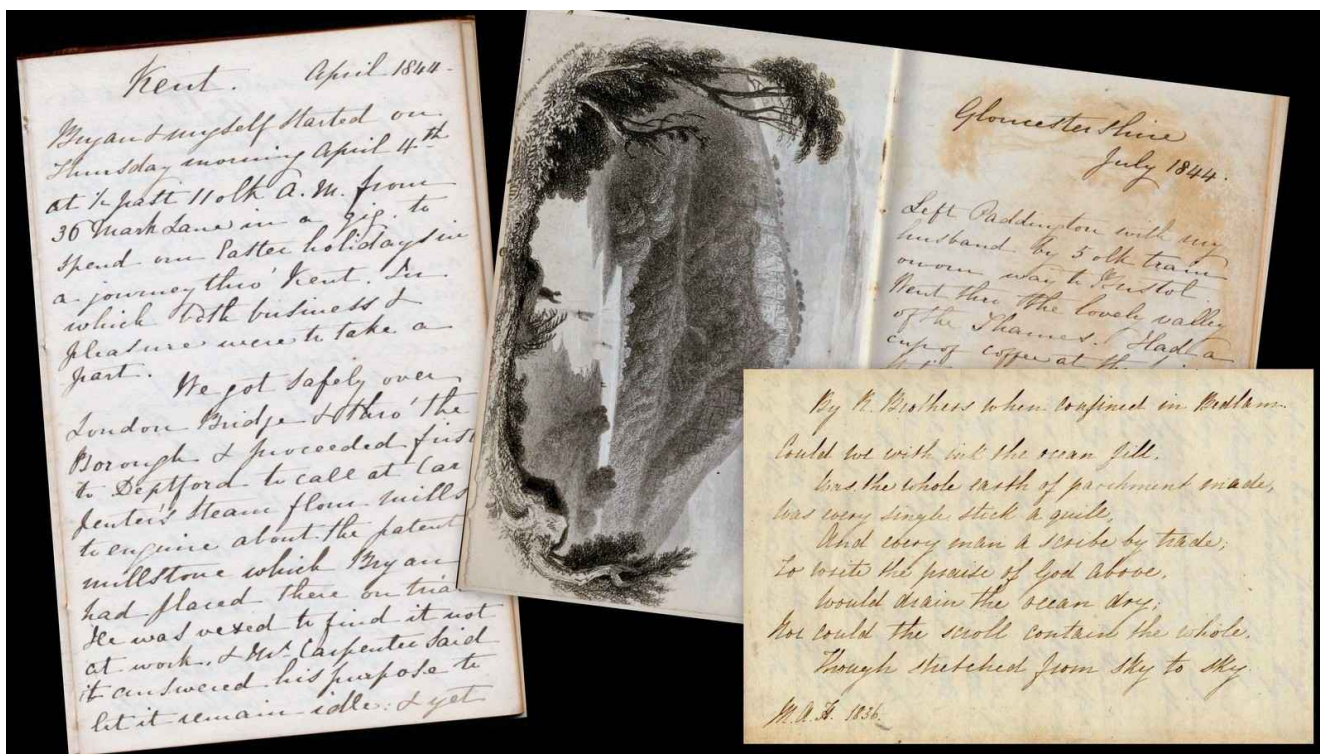 Kent. April 1844.
Bryan & myself started on
Thursday morning April 4th
at ½ past 11 olk A.M. from
36 Mark Lane in a gig to
spend our Easter holidays in
a journey thro' Kent. In
which both business &
pleasure were to take a
part.
We got safely over
London Bridge & thro' the
Borough & proceeded first
to Deptford to call at Car
penter's steam flour mills
to enquire about the patent
millstone which Bryan
had placed there on trial
He was vexed to find it not
at work. & Mr. Carpenter said
it answered his purpose to
let it remain idle: & yet
Gloucestershire
July 1844.
Left Paddington with my
husband by 5 olk train
on our way to Bristol
Went thro the lovely valley
of the Thames. Had a
cup of coffee at the
By R. Brothers when confined in Bedlam.
Could we with ink the ocean fill,
Was the whole earth of parchment made,
Was every single stick a quill,
And every man a scribe by trade;
To write the praise of God above,
Would drain the ocean dry;
Nor could the scroll contain the whole,
Though stretched from sky to sky
M.A.H. 1836.